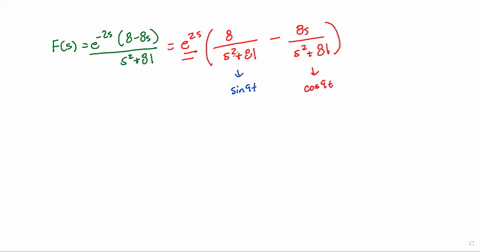 F(s) = e^{-2s} (8-8s) / s²+81 = e^{2s} ( 8 / s²+81 - 8s / s²+81 )
↓ ↓
sin9t cos9t